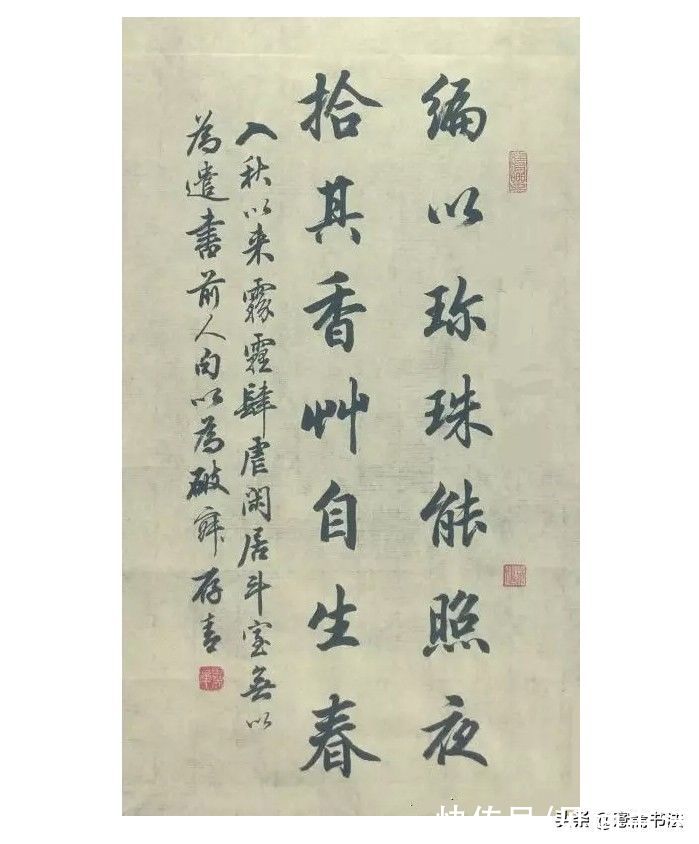 编以珍珠能照夜
拾其香艸自生春
入秋以来霧霾肆虐闲居斗室無以
為遣書前人句以為破寂存青
头条@
书法